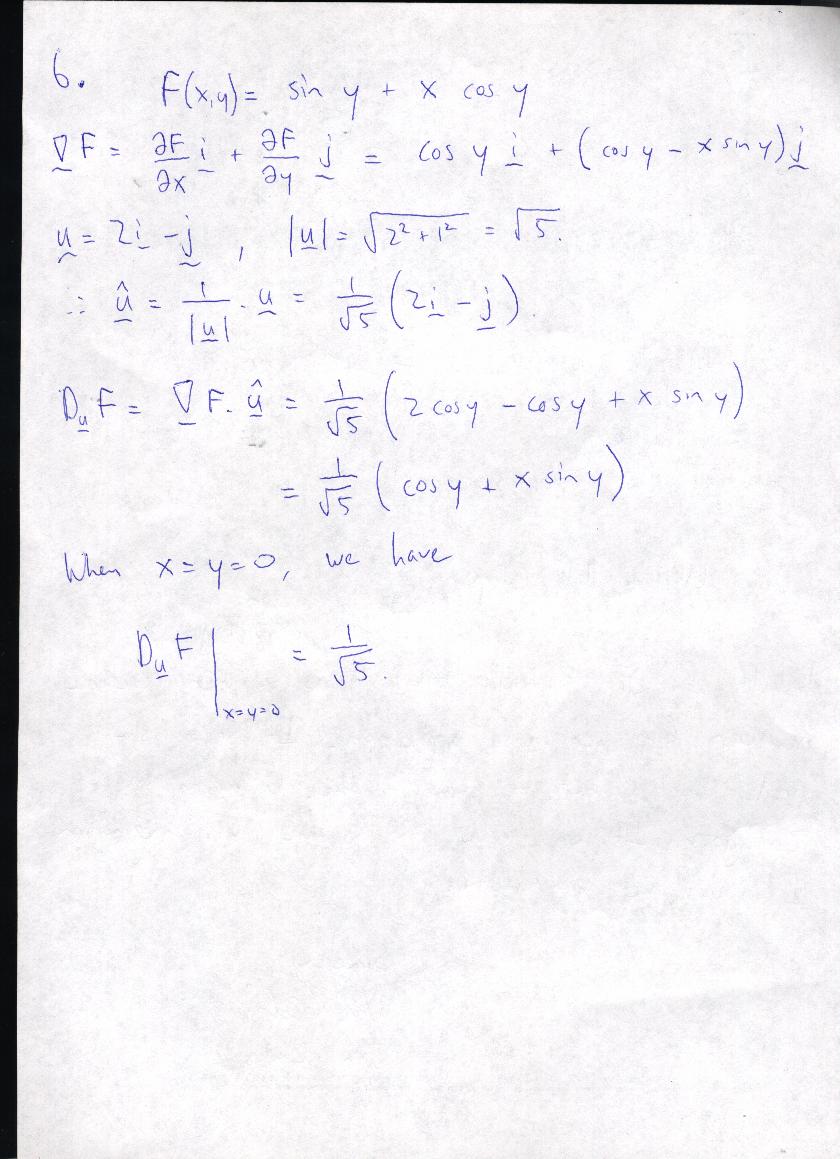 6. F(x,y) = sin y + x cos y
∇F = ∂F/∂x i + ∂F/∂y j = cos y i + (cos y − x sin y) j
u = 2i − j , |u| = √(2² + 1²) = √5.
∴ û = 1/|u| · u = 1/√5 (2i − j).
D_u F = ∇F · û = 1/√5 (2 cos y − cos y + x sin y)
= 1/√5 (cos y + x sin y)
When x = y = 0, we have
D_u F |x=y=0 = 1/√5.